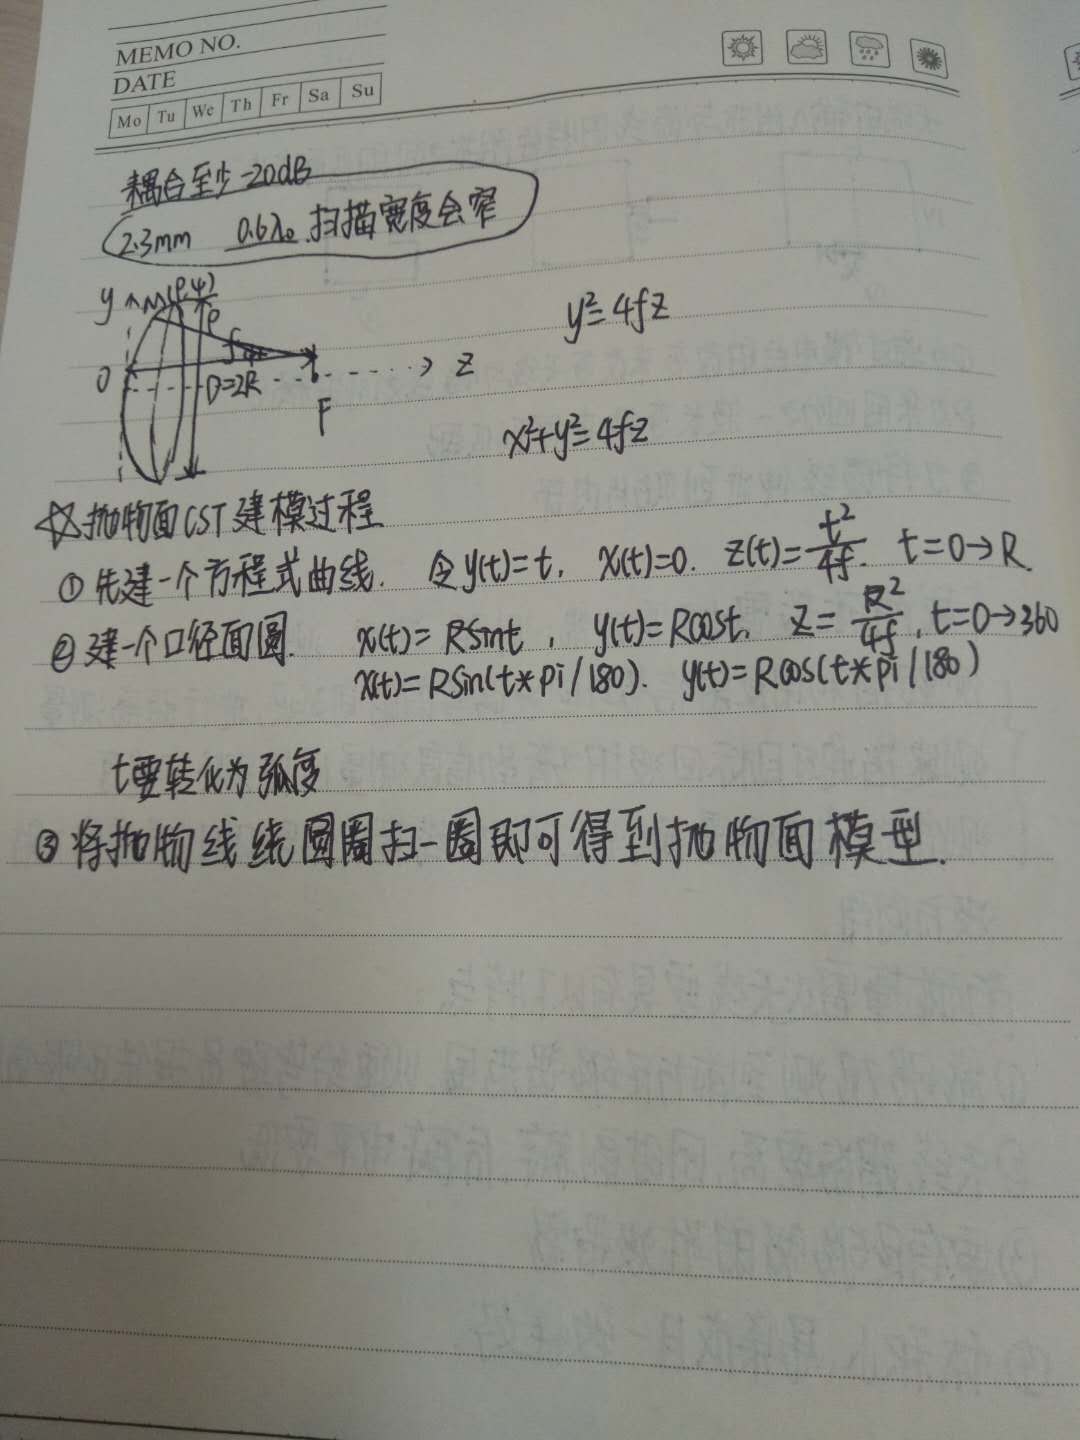 MEMO NO.
DATE
Mo Tu We Th Fr Sa Su
耦合至少-20dB
2.3mm 0.6λ₀.扫描宽度会窄
y M(ρ,ψ)
ρ
f ψ
O D=2R Z
F
y²=4fz
x²+y²=4fz
☆抛物面CST建模过程
①先建一个方程式曲线. 令y(t)=t, x(t)=0. z(t)=t²/4f. t=0→R.
②建一个口径面圆. x(t)=Rsint, y(t)=Rcost, z=R²/4f, t=0→360
x(t)=Rsin(t*pi/180). y(t)=Rcos(t*pi/180)
t要转化为弧度
③将抛物线绕圆圈扫一圈即可得到抛物面模型.